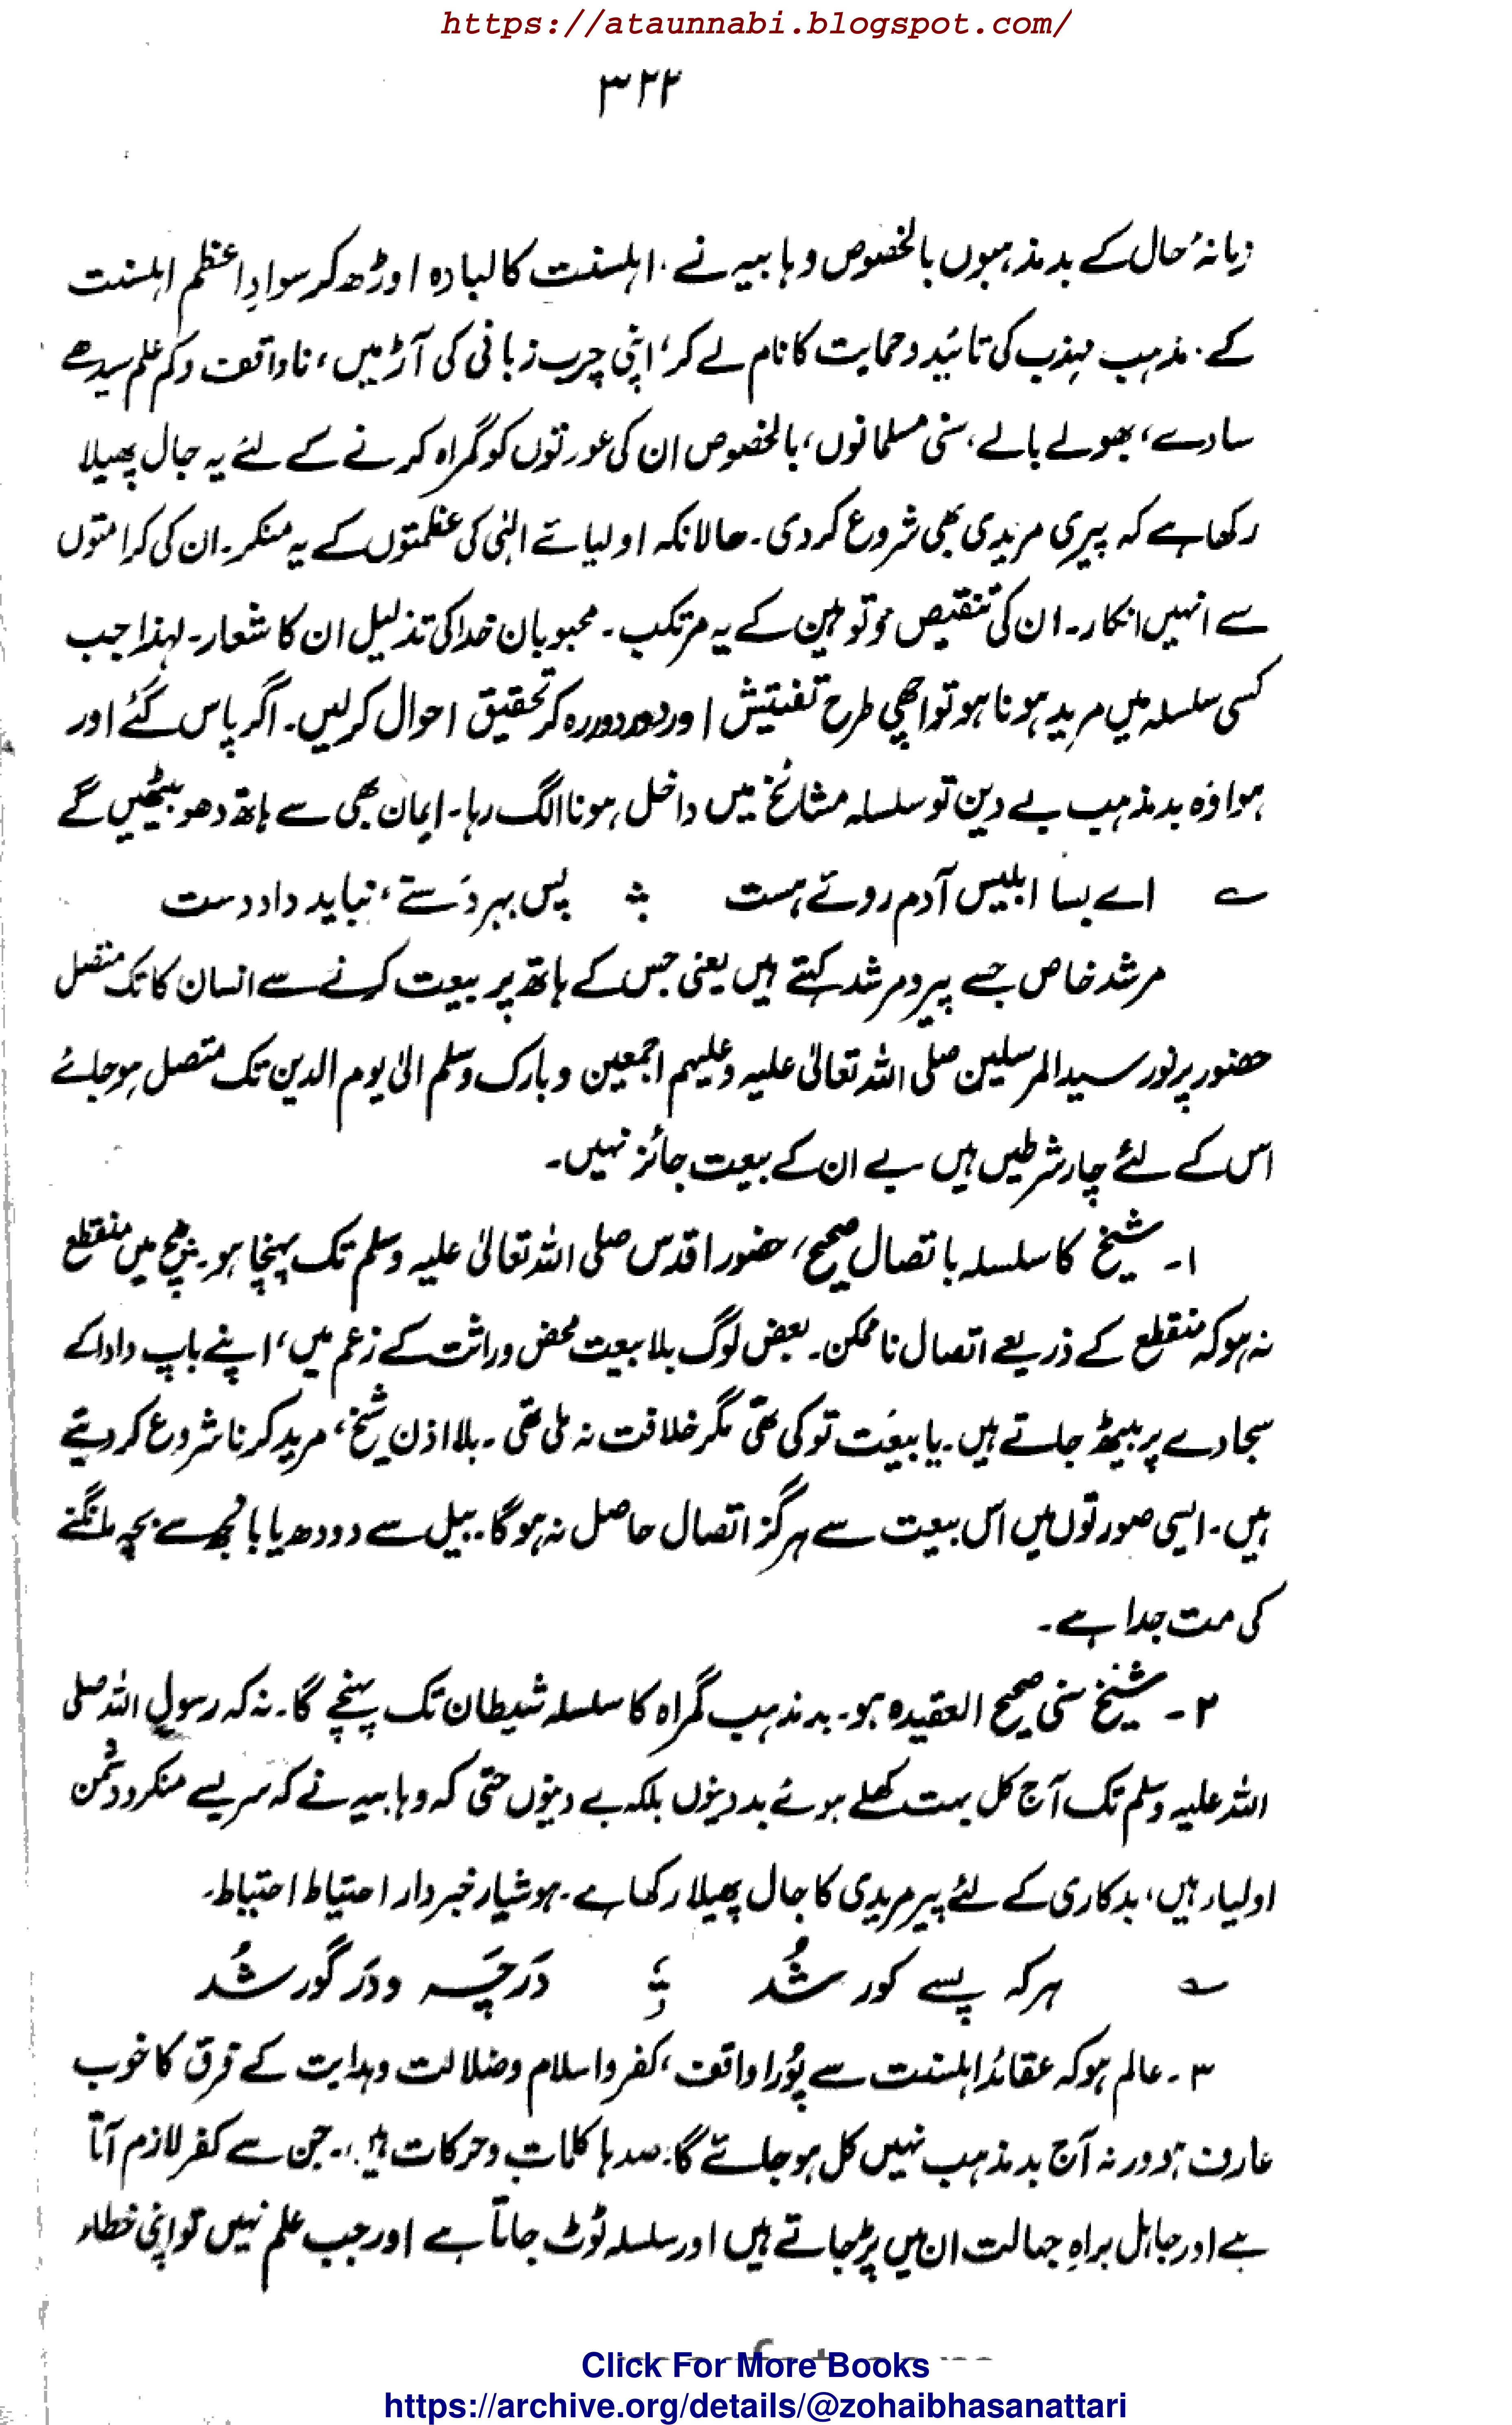 https://ataunnabi.blogspot.com/
۳۲۲
زمانۂ حال کے بدمذہبوں بالخصوص وہابیہ نے، اہلسنت کا لبادہ اوڑھ کر سوادِ اعظم اہلسنت
کے۔ مذہب مہذب کی تائید و حمایت کا نام لے کر، اپنی چرب زبانی کی آڑ میں، ناواقف و کم علم سیدھے
سادے، بھولے بالے، سنی مسلمانوں، بالخصوص ان کی عورتوں کو گمراہ کرنے کے لئے یہ جال پھیلا
رکھا ہے کہ پیری مریدی بھی شروع کر دی۔ حالانکہ اولیائے الٰہی کی عظمتوں کے یہ منکر۔ ان کی کرامتوں
سے انہیں انکار۔ ان کی تنقیص و توہین کے یہ مرتکب۔ محبوبان خدا کی تذلیل ان کا شعار۔ لہذا جب
کسی سلسلہ میں مرید ہونا ہو تو اچھی طرح تفتیش اور دور دور رہ کر تحقیق احوال کر لیں۔ اگر پاس گئے اور
ہوا وہ بدمذہب بے دین تو سلسلہ مشائخ میں داخل ہونا الگ رہا۔ ایمان بھی سے ہاتھ دھو بیٹھیں گے
؎ اے بسا ابلیس آدم روئے ہست ؛ پس بہر دَستے، نباید داد دست
مرشد خاص جسے پیر و مرشد کہتے ہیں یعنی جس کے ہاتھ پر بیعت کرنے سے انسان کا تک متصل
حضور پرنور سید المرسلین صلی اللہ تعالیٰ علیہ وعلیہم اجمعین و بارک وسلم الیٰ یوم الدین تک متصل ہو جائے
اس کے لئے چار شرطیں ہیں بے ان کے بیعت جائز نہیں۔
۱۔ شیخ کا سلسلہ باتصال صحیح، حضور اقدس صلی اللہ تعالیٰ علیہ وسلم تک پہنچا ہو۔ بیچ میں منقطع
نہ ہو کہ منقطع کے ذریعے اتصال ناممکن۔ بعض لوگ بلا بیعت محض وراثت کے زعم میں، اپنے باپ دادا کے
سجادے پر بیٹھ جاتے ہیں۔ یا بیعَت تو کی تھی مگر خلافت نہ ملی تھی۔ بلا اذن شیخ، مرید کرنا شروع کر دیتے
ہیں۔ ایسی صورتوں میں اس بیعت سے ہرگز اتصال حاصل نہ ہوگا۔ بیل سے دودھ یا بانجھ سے بچہ مانگنے
کی مت جدا ہے۔
۲۔ شیخ سنی صحیح العقیدہ ہو۔ بدمذہب گمراہ کا سلسلہ شیطان تک پہنچے گا۔ نہ کہ رسول اللہ صلی
اللہ علیہ وسلم تک آج کل بہت کھلے ہوئے بددینوں بلکہ بے دینوں حتی کہ وہابیہ نے کہ سرے سے منکر و دشمن
اولیاء ہیں، بدکاری کے لئے پیر مریدی کا جال پھیلا رکھا ہے۔ ہوشیار خبردار احتیاط احتیاط۔
؎ ہرکہ پسے کور شُد ؛ دَرچَہ و دَر گور شُد
۳۔ عالم ہو کہ عقائد اہلسنت سے پُورا واقف، کفر و اسلام و ضلالت و ہدایت کے فرق کا خوب
عارف ہو ورنہ آج بدمذہب نہیں کل ہو جائے گا: صدہا کلمات و حرکات ہیں۔ جن سے کفر لازم آتا
ہے اور جاہل براہِ جہالت ان میں پڑ جاتے ہیں اور سلسلہ ٹوٹ جاتا ہے اور جب علم نہیں تو اپنی خطاء
Click For More Books
https://archive.org/details/@zohaibhasanattari